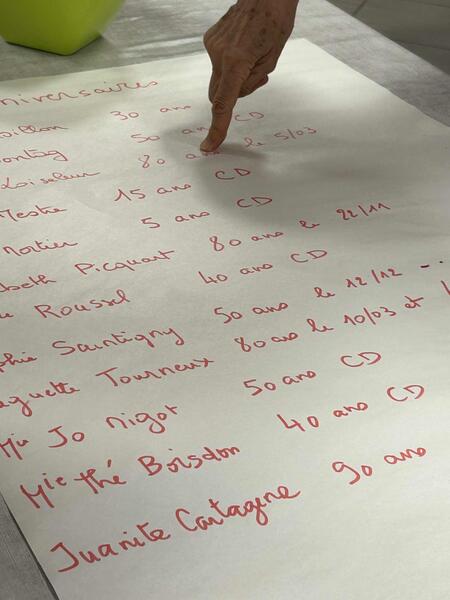 niversaires
30 ans CD
50 ans CD
Loiseleur 80 ans le 5/03
Mestre 15 ans CD
Mortier 5 ans CD
beth Picquart 80 ans le 22/11
Roussel 40 ans CD
phie Saintigny 50 ans le 12/12
guette Tourneux 80 ans le 10/03 et
Mie Jo Nigot 50 ans CD
Mie thé Boisdon 40 ans CD
Juanite Cartagene 90 ans